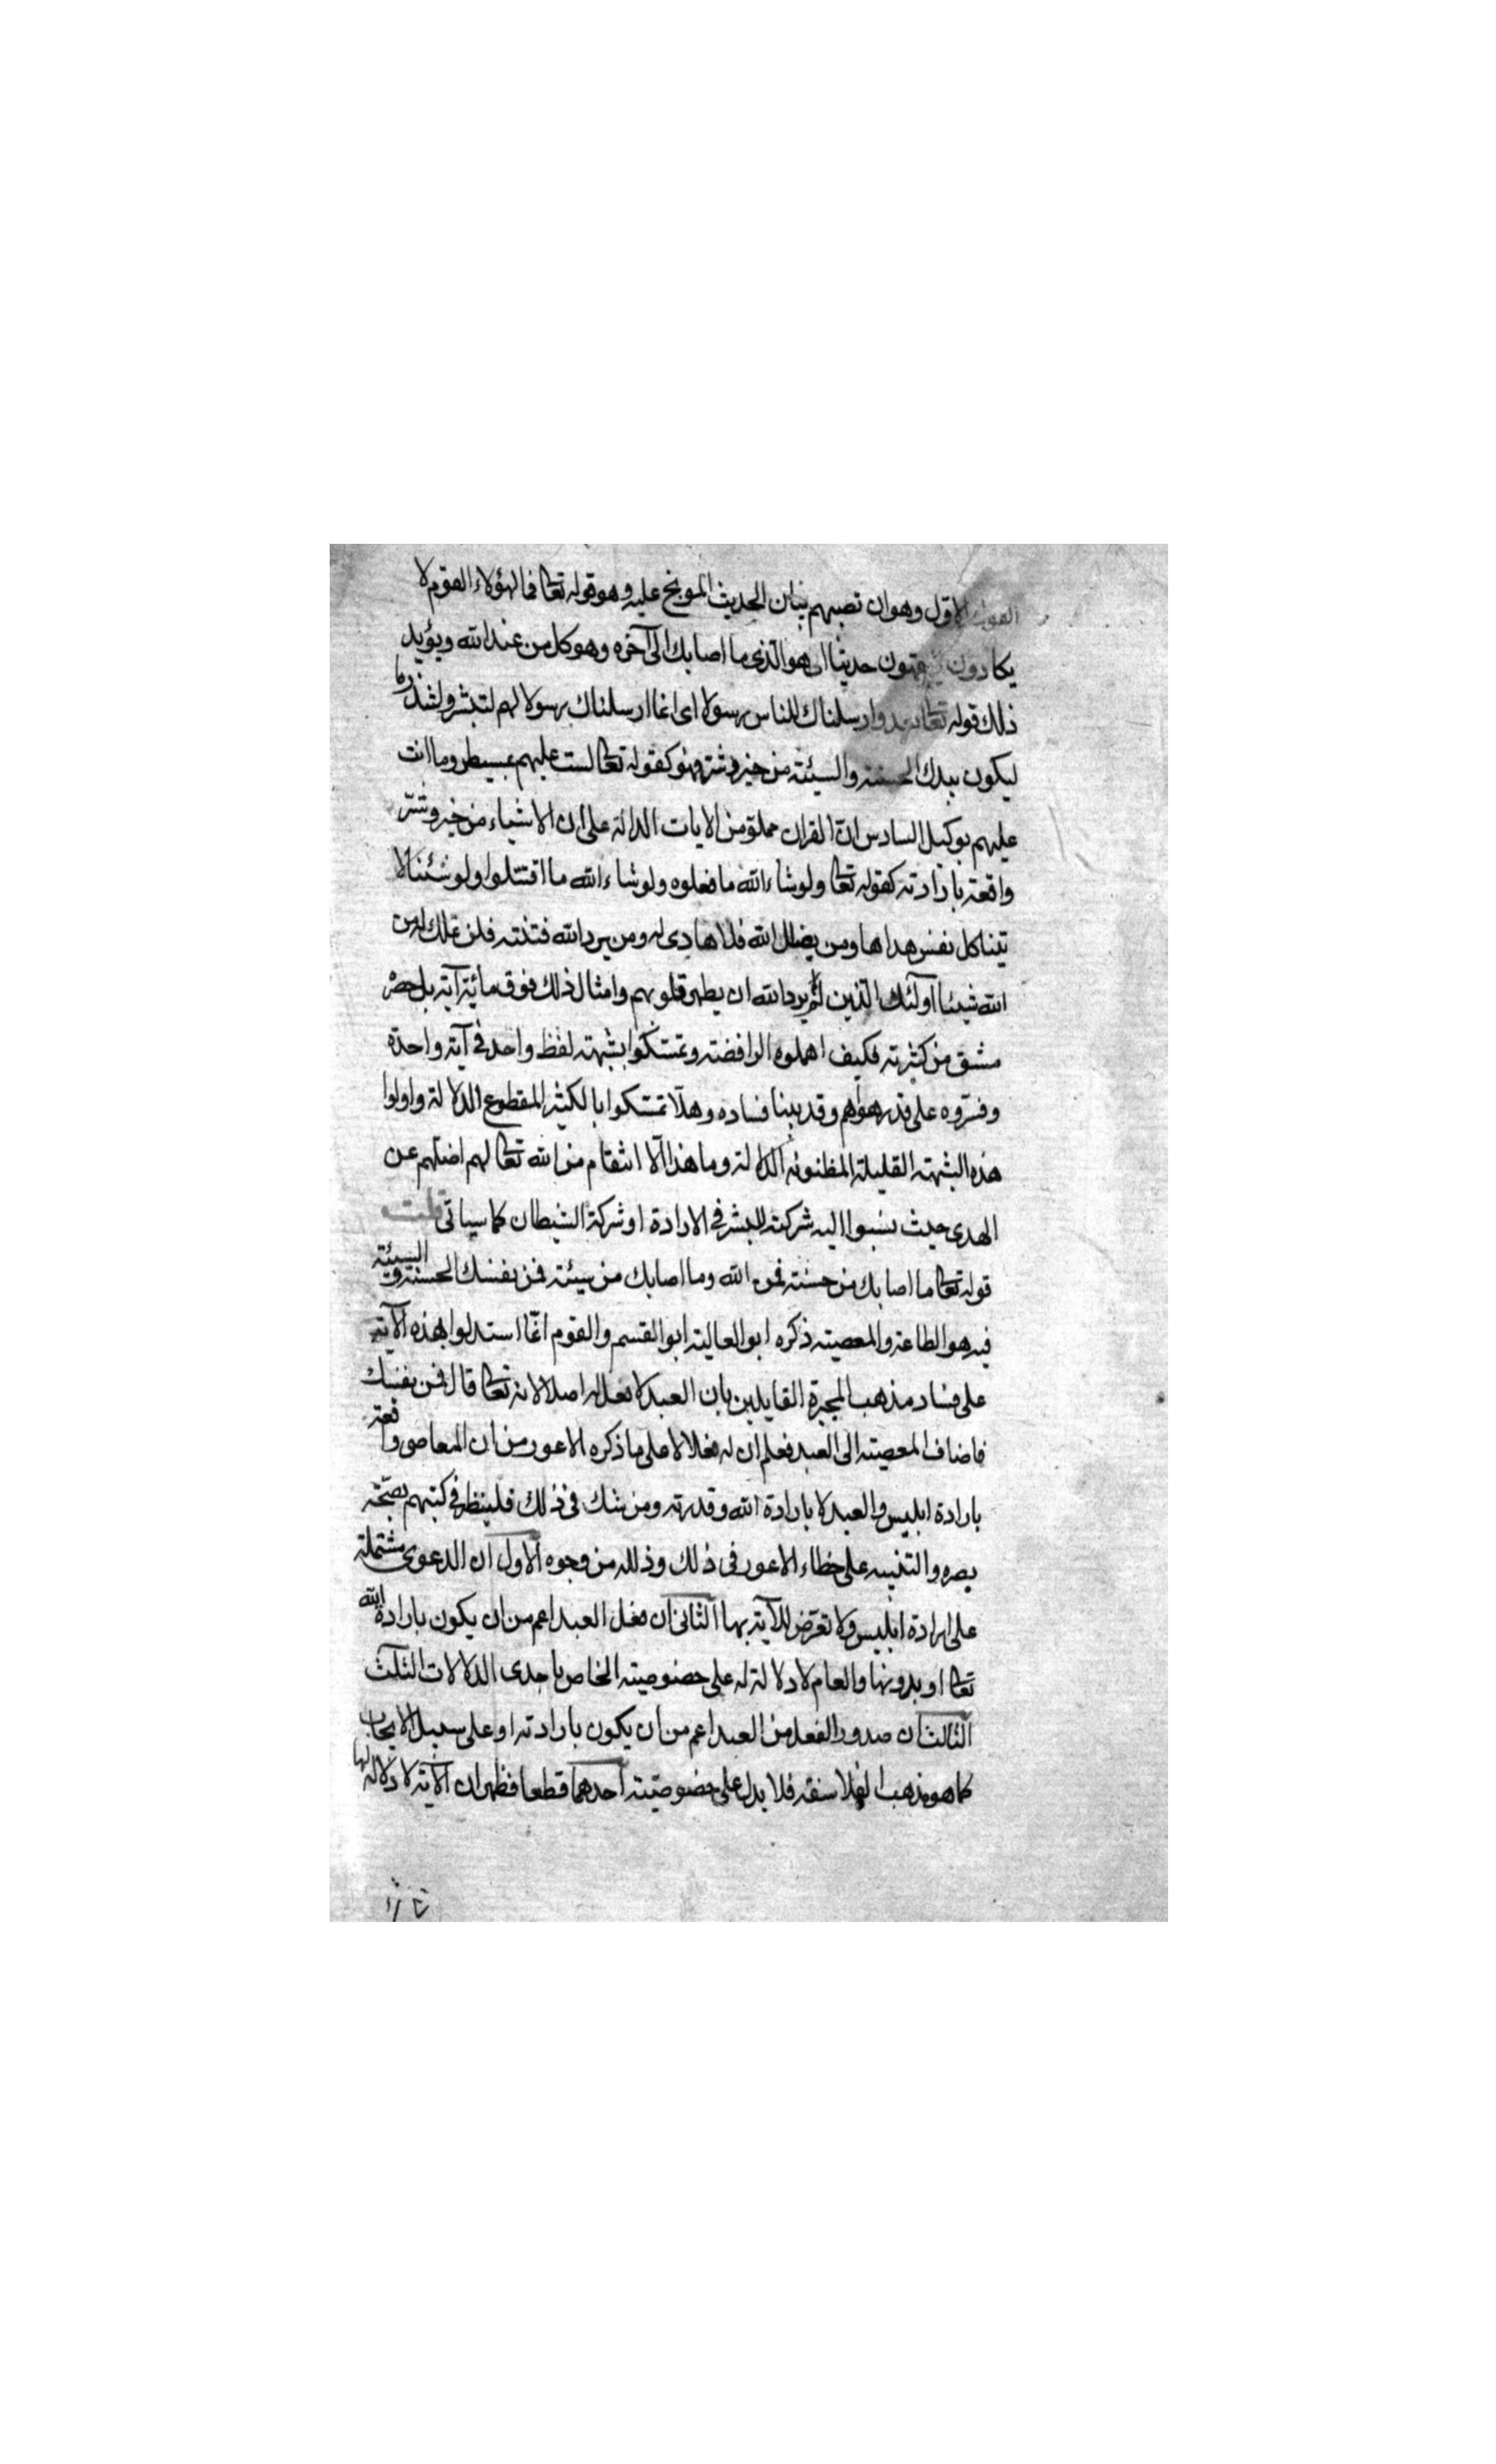 القول الاول وهو ان تصبهم بيان الحديث الموبخ عليه وهو قوله تعا فما لهؤلاء القوم لا
يكادون يفقهون حديثا اى هو الذى ما اصابك الى آخره وهو كل من عند الله ويؤيد
ذلك قوله تعا بعد وارسلناك للناس رسولا اى انما ارسلناك رسولا لهم لتبشر ولتنذر وما
ليكون بيدك الحسنة والسيئة من خير وشر فهو كقوله تعا لست عليهم بمسيطر وما انت
عليهم بوكيل السادس ان القران مملو من الايات الدالة على ان الاشياء من خير وشر
واقعة بارادته كقوله تعا ولو شاء الله ما فعلوه ولو شاء الله ما اقتتلوا ولو شئنا لا
تينا كل نفس هداها ومن يضلل الله فلا هادى له ومن يرد الله فتنته فلن تملك له من
الله شيئا اولئك الذين لم يرد الله ان يطهر قلوبهم وامثال ذلك فوق مائة آية بل حصر
مشق من كثرته فكيف اهملوه الرافضة وتمسكوا بشبهة لفظ واحد فى آية واحدة
وفسروه على قدر هواهم وقد بينا فساده وهلا تمسكوا بالكثير المقطوع الدلالة واولوا
هذه الشبهة القليلة المظنونة الدلالة وما هذا الا انتقام من الله تعا لهم اضلهم عن
الهدى حيث نسبوا اليه شركة للبشر فى الارادة او شركة الشيطان كما سياتى قلت
قوله تعا ما اصابك من حسنة فمن الله وما اصابك من سيئة فمن نفسك الحسنة والسيئة
فيه هو الطاعة والمعصية ذكره ابو العالية ابو القسم والقوم انما استدلوا بهذه الآية
على فساد مذهب المجبرة القايلين بان العبد لا فعل له اصلا لانه تعا قال فمن نفسك
فاضاف المعصية الى العبد فعلم ان له فعلا لا على ما ذكره الاعور من ان المعاصى واقعة
بارادة ابليس والعبد لا بارادة الله وقدرته ومن شك فى ذلك فلينظر فى كتبهم بصحة
بصره والتنبيه على خطاء الاعور فى ذلك وذلك من وجوه الاول ان الدعوى مشتملة
على ارادة ابليس ولا تعرض للآية بها الثانى ان فعل العبد اعم من ان يكون بارادة الله
تعا او بدونها والعام لا دلالة له على خصوصية الخاص باحدى الدلالات الثلث
الثالث ان صدور الفعل من العبد اعم من ان يكون بارادته او على سبيل الايجاب
كما هو مذهب الفلاسفة فلا يدل على خصوصية احدهما قطعا فظهر ان الآية لا دلالة لها